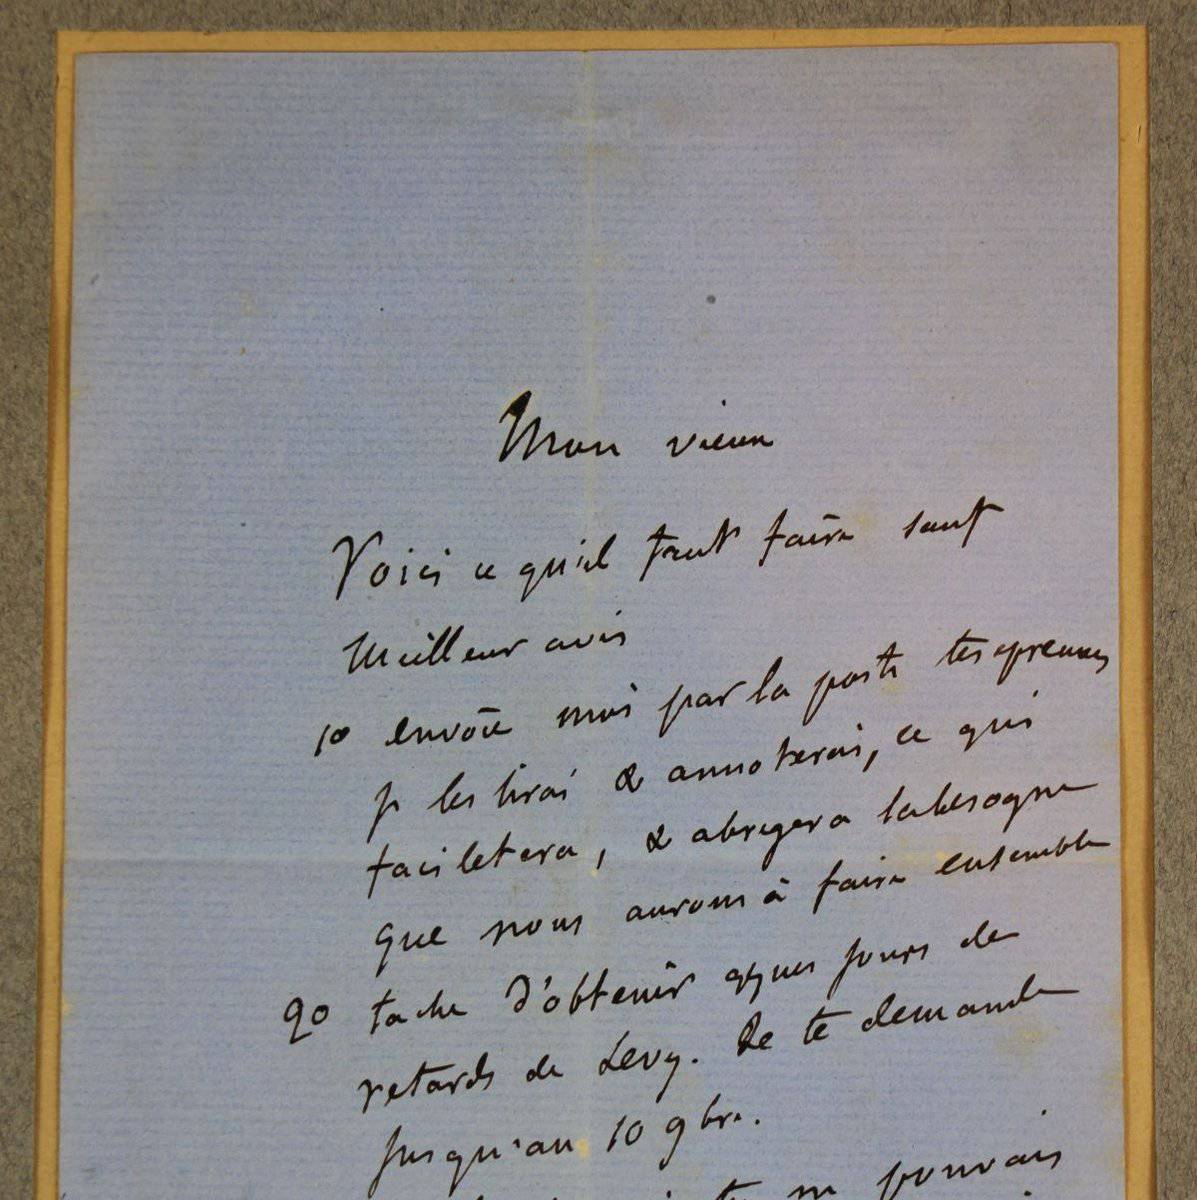 Mon vieux
Voici ce qu'il faut faire sauf
meilleur avis
1o envoie moi par la poste tes epreuves
je les lirai & annoterai, ce qui
facilitera, & abregera la besogne
que nous aurons à faire ensemble
2o tache d'obtenir qques jours de
retards de Levy. Je te demande
jusqu'au 10 9bre.
tu ne pouvais